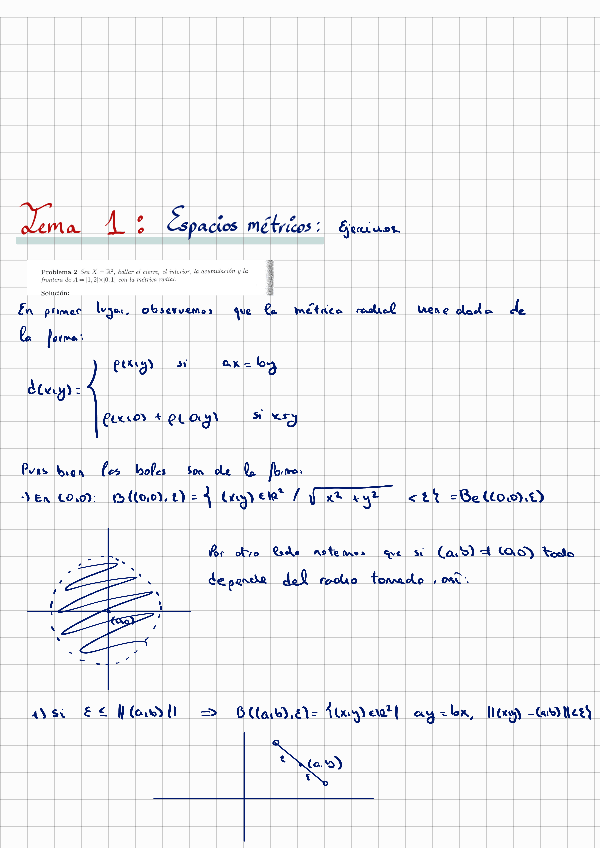 Tema 1: Espacios métricos: Ejercicios
Problema 2 Sea X = ℝ², hallar el cierre, el interior, la acumulación y la
frontera de A = [1, 2]×[0, 1] con la métrica radial.
Solución:
En primer lugar, observemos que la métrica radial viene dada de
la forma:
d(x,y) = { ρ(x,y) si ax = by
ρ(x,0) + ρ(0,y) si x≠y
Pues bien las bolas son de la forma:
·) En (0,0): B((0,0), ε) = { (x,y) ∈ ℝ² / √x² + y² < ε } = Be((0,0), ε)
Por otro lado notemos que si (a,b) ≠ (0,0) todo
depende del radio tomado, así:
(0,0)
1) Si ε ≤ ||(a,b)|| ⇒ B((a,b), ε) = {(x,y) ∈ ℝ² | ay = bx, ||(x,y) - (a,b)|| < ε}
ε (a,b)
ε